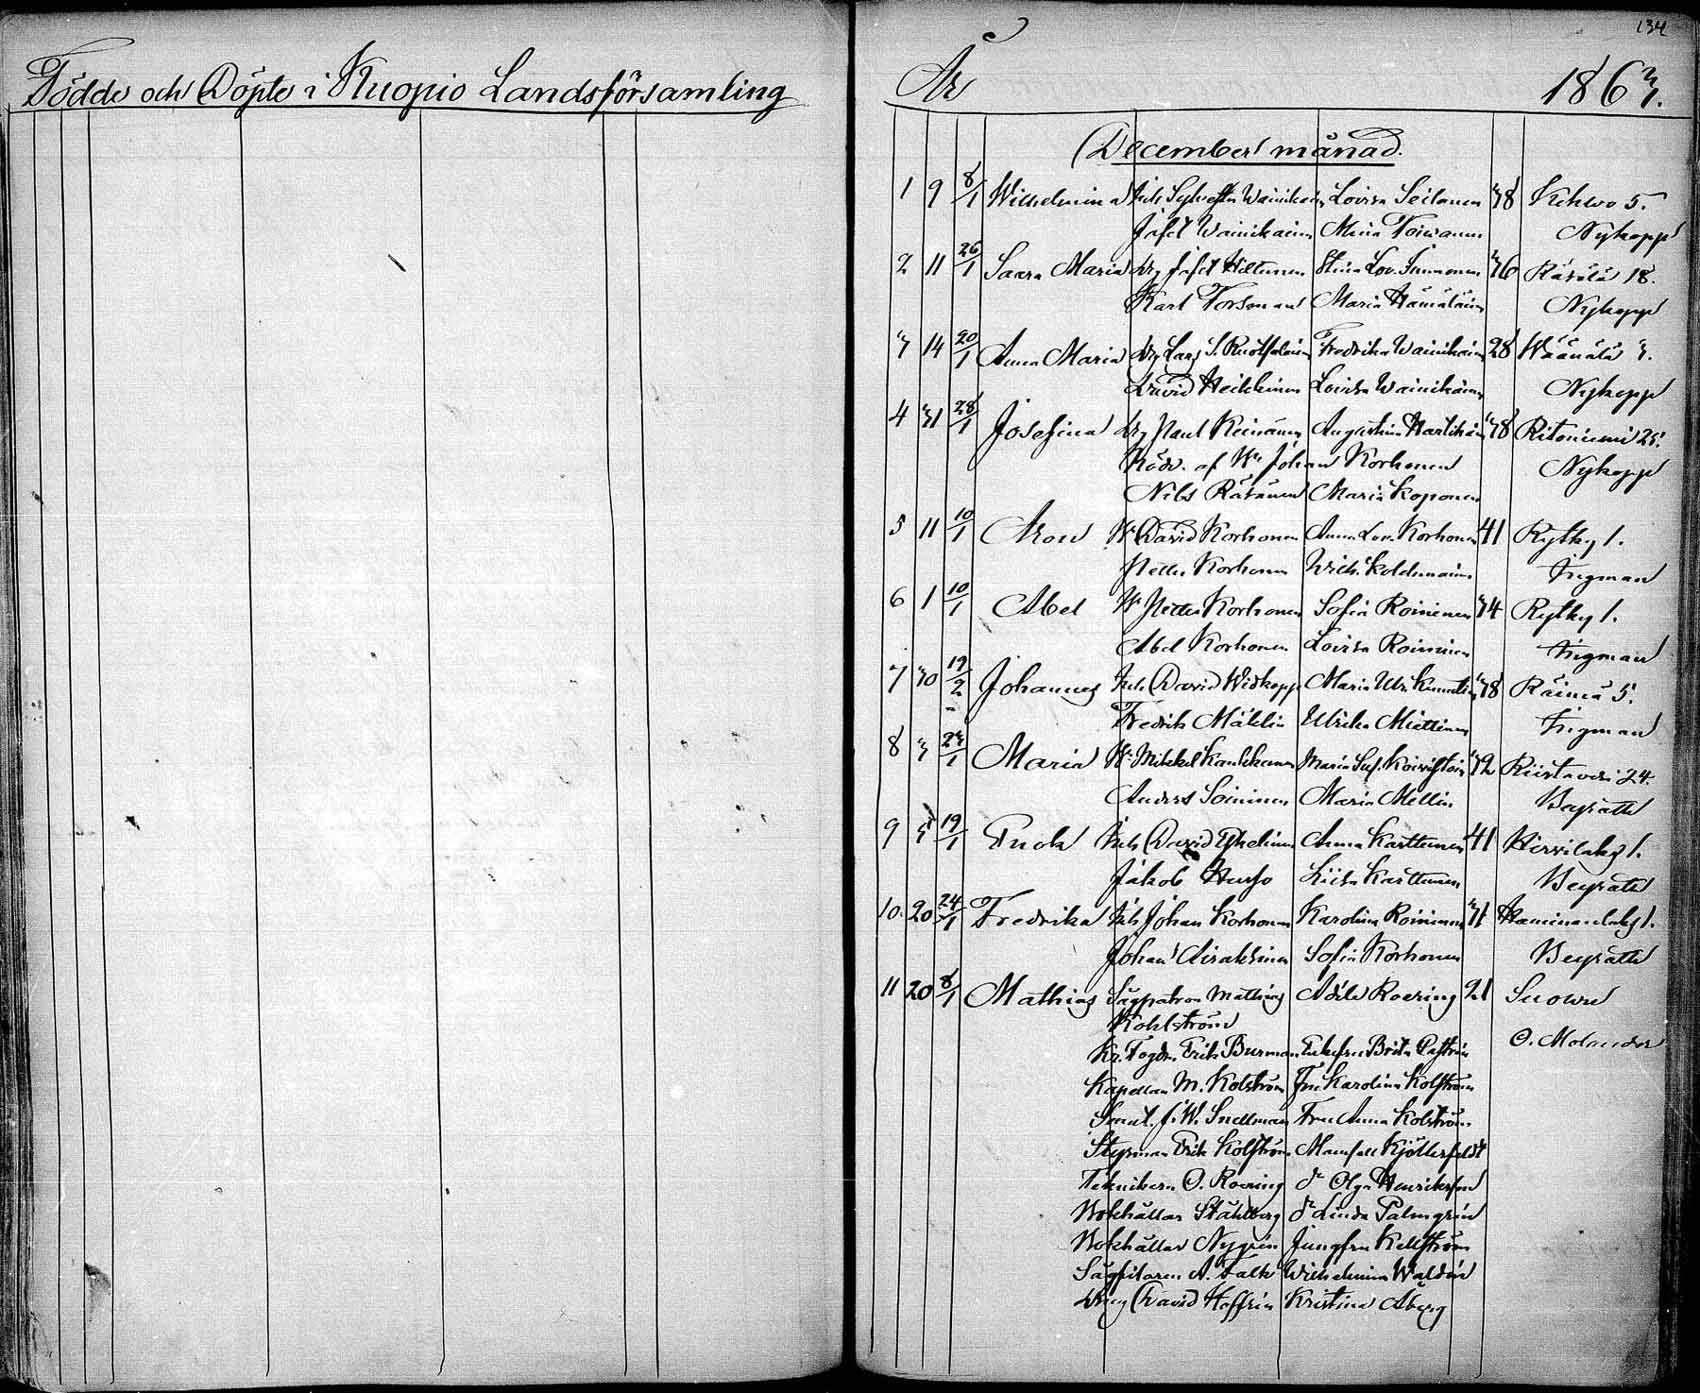 Födde och Döpte i Kuopio Landsförsamling
134
År 1863.
December månad.
1 9 8/1 Wilhelmina Lovisa Seilonen 38 Kehwo 5.
Jafet Wainikainen Miina Toiwanen Nykopp
2 11 26/1 Saara Maria Drg Jafet Hiltunen Stina Lov. 36 Räsälä 18.
Karl Forsman Maria Hämäläinen Nykopp
3 14 20/1 Anna Maria Drg Lars Fredrika Wainikainen 28 Wäänälä 3.
David Heikkinen Lovisa Wainikainen Nykopp
4 31 28/1 Josefina Drg Paul Reinänen Augustina 38 Ritoniemi 25.
af Johan Korhonen Nykopp
Nils Räsänen Maria Koponen
5 11 10/1 Aron David Korhonen Anna Lov. Korhonen 41 Rytky 1.
Petter Korhonen Wilh. Kolehmainen Bergman
6 1 10/1 Abel Petter Korhonen Sofia Roininen 34 Rytky 1.
Abel Korhonen Lovisa Roininen
7 30 19/2 Johannes David Widkopp Maria Ulr. 38 Räimä 5.
Fredrik Mählin Ulrika Miettinen
8 3 23/1 Maria Mikkel Kaukkanen Maria Sof. Koivistoin 32 Riistavesi 24.
Anders Soininen Maria Mellin Beyrath
9 5 19/1 Enok David Anna Karttunen 41 Hirvilaks 1.
Jakob Hurjo Liisa Karttunen Beyrath
10. 20 24/1 Fredrika Johan Korhonen Karolina Roininen 31 Haminanlaks 1.
Johan Airaksinen Sofia Korhonen Beyrath
11 20 8/1 Mathias Sågpatron Mathias Adele Roering 21 Suowu
Kohlström
Kr. Fogden Erik Burman Enkefru Brita O. Molander
Kapellan M. Kolström Fru Karolina Kolström
Senat. J. W. Snellman Fru Anna Kolström
Styrman Erik Kolström Mamsell Kjöllerfeldt
Teknikern O. Roering Dr Olga Henrikson
Bokhållar Ståhlberg Dr Linda Palmgren
Bokhållar Nygrén Jungfru Kellström
A. Falk Wilhelmina Waldén
Dreng David Hoffrén Kristina Åberg